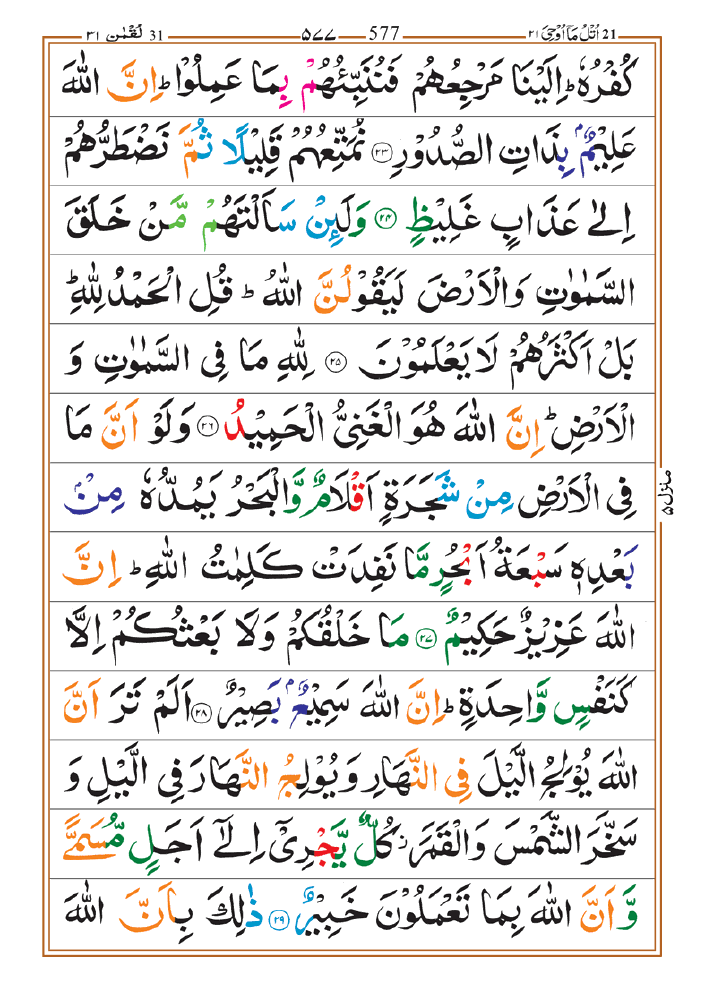 21 اُتْلُ مَاۤ اُوْحِیَ ٢١ 577 ٥٧٧ 31 لُقْمٰن ٣١
كُفْرُهٗ ؕ اِلَیْنَا مَرْجِعُهُمْ فَنُنَبِّئُهُمْ بِمَا عَمِلُوْا ؕ اِنَّ اللّٰهَ
عَلِیْمٌۢ بِذَاتِ الصُّدُوْرِ ﴿۲۳﴾ نُمَتِّعُهُمْ قَلِیْلًا ثُمَّ نَضْطَرُّهُمْ
اِلٰی عَذَابٍ غَلِیْظٍ ﴿۲۴﴾ وَلَئِنْ سَاَلْتَهُمْ مَّنْ خَلَقَ
السَّمٰوٰتِ وَالْاَرْضَ لَیَقُوْلُنَّ اللّٰهُ ؕ قُلِ الْحَمْدُ لِلّٰهِ ؕ
بَلْ اَكْثَرُهُمْ لَا یَعْلَمُوْنَ ﴿۲۵﴾ لِلّٰهِ مَا فِی السَّمٰوٰتِ وَ
الْاَرْضِ ؕ اِنَّ اللّٰهَ هُوَ الْغَنِیُّ الْحَمِیْدُ ﴿۲۶﴾ وَلَوْ اَنَّ مَا
فِی الْاَرْضِ مِنْ شَجَرَةٍ اَقْلَامٌ وَّالْبَحْرُ یَمُدُّهٗ مِنْۢ
بَعْدِهٖ سَبْعَةُ اَبْحُرٍ مَّا نَفِدَتْ كَلِمٰتُ اللّٰهِ ؕ اِنَّ
اللّٰهَ عَزِیْزٌ حَكِیْمٌ ﴿۲۷﴾ مَا خَلْقُكُمْ وَلَا بَعْثُكُمْ اِلَّا
كَنَفْسٍ وَّاحِدَةٍ ؕ اِنَّ اللّٰهَ سَمِیْعٌۢ بَصِیْرٌ ﴿۲۸﴾ اَلَمْ تَرَ اَنَّ
اللّٰهَ یُوْلِجُ الَّیْلَ فِی النَّهَارِ وَیُوْلِجُ النَّهَارَ فِی الَّیْلِ وَ
سَخَّرَ الشَّمْسَ وَالْقَمَرَ ؗ كُلٌّ یَّجْرِیْۤ اِلٰۤی اَجَلٍ مُّسَمًّی
وَّاَنَّ اللّٰهَ بِمَا تَعْمَلُوْنَ خَبِیْرٌ ﴿۲۹﴾ ذٰلِكَ بِاَنَّ اللّٰهَ
منزل ۵